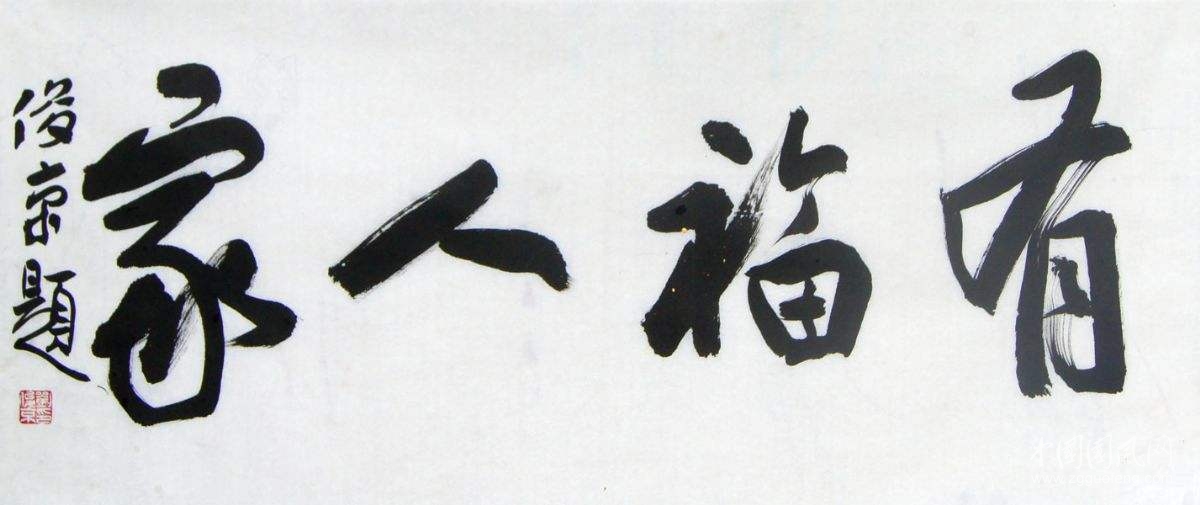 有福人家
俊京题